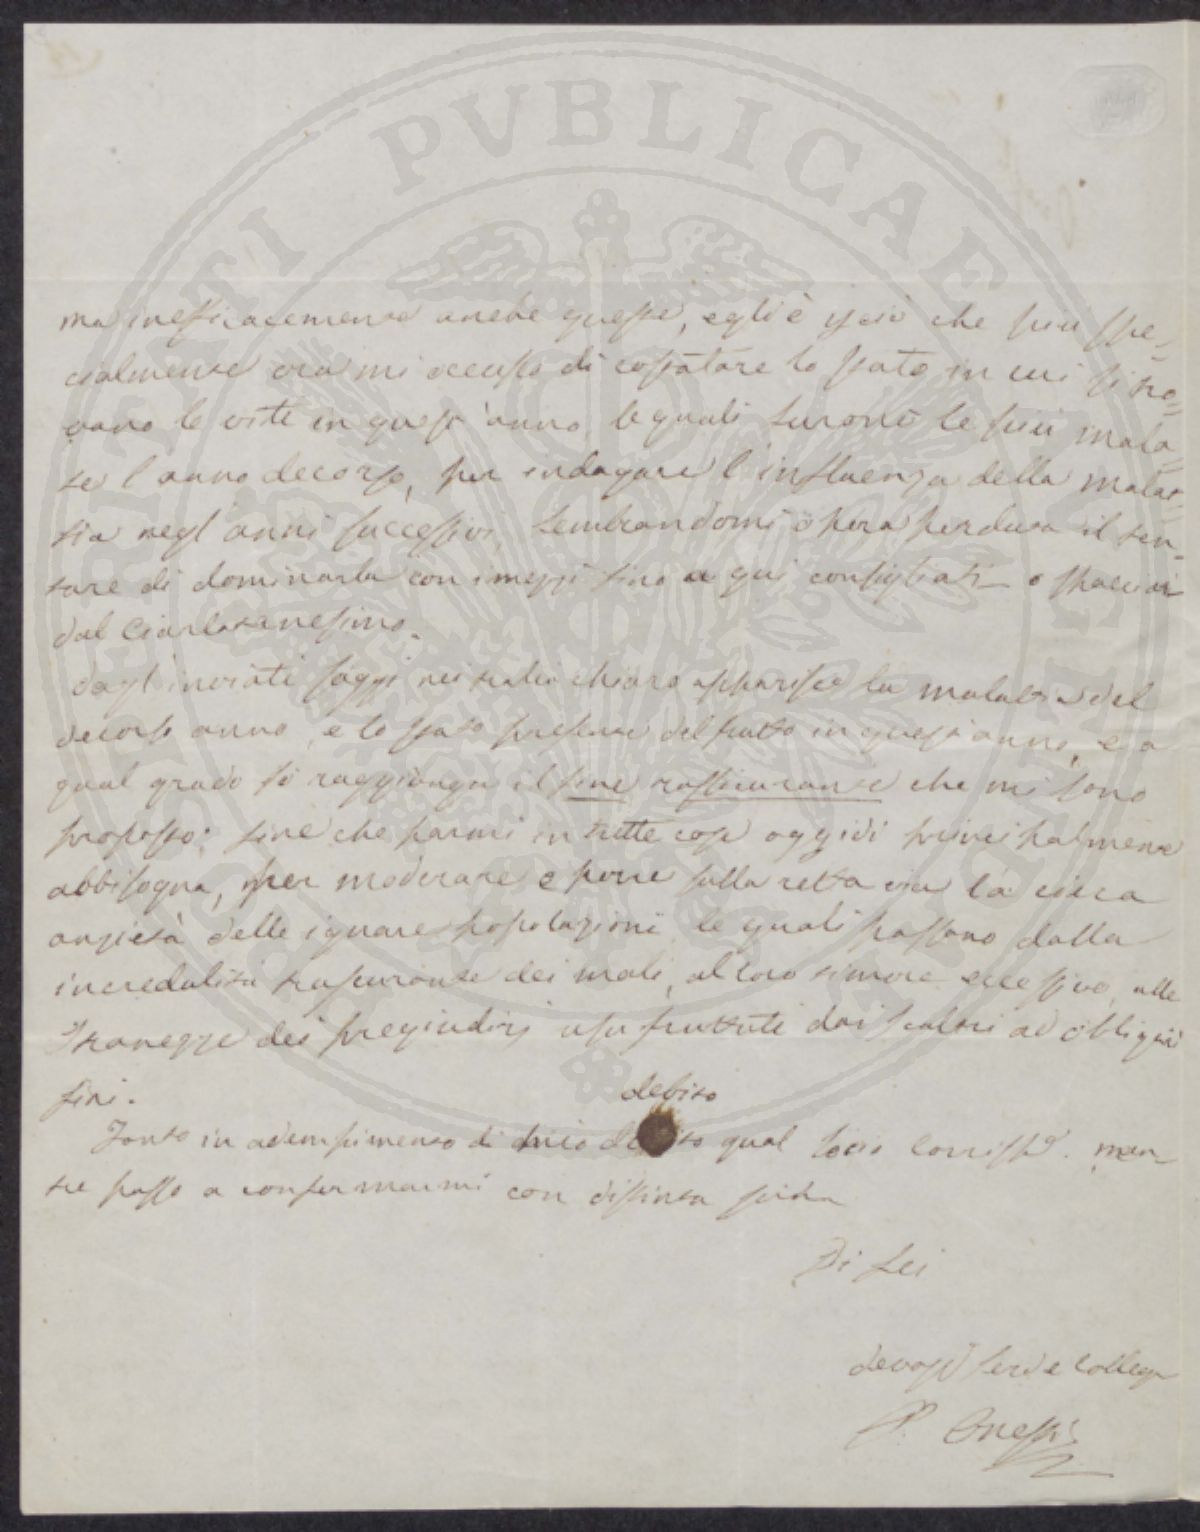 PUBLICAE
ma inefficacemente anche queste, egli è perciò che più spe=
cialmente ora mi occupo di costatare lo stato in cui si tro=
vano le viti in quest'anno, le quali furono le più mala=
te l'anno decorso, per indagare l'influenza della malat=
tia negl'anni successivi, sembrandomi opera perduta il ten=
tare di dominarla con i mezzi sino a qui consigliati o spacciati
dal Ciarlatanesimo.
Dagl'inviati saggi nei tralci chiaro apparisce la malattia del
decorso anno, e lo stato presente del frutto in quest'anno, e a
qual grado si raggiunga il fine rassicurante che mi sono
proposto; fine che parmi in tutte cose oggidì principalmente
abbisogna, per moderare e porre sulla retta via la cieca
ansietà delle ignare popolazioni le quali passano dalla
incredulità trascurante dei mali, al loro timore eccessivo, alle
stranezze dei pregiudizj usufruttati dai scaltri ad obliqui
fini.
debito
Tanto in adempimento di mio debito qual Socio Corrispe. men=
tre passo a confermarmi con distinta stima
Di Lei
devoto Serv e Collega